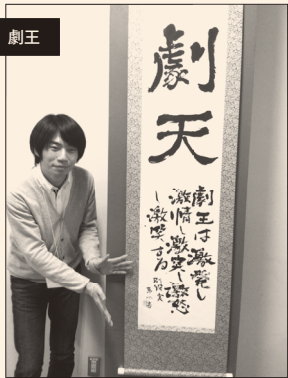 劇王
劇
天
劇王は激発し
激情し激突し激怒
し激する